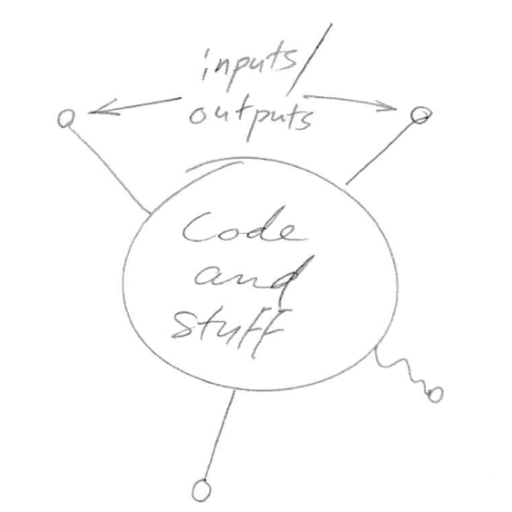 inputs/
outputs
Code
and
stuff